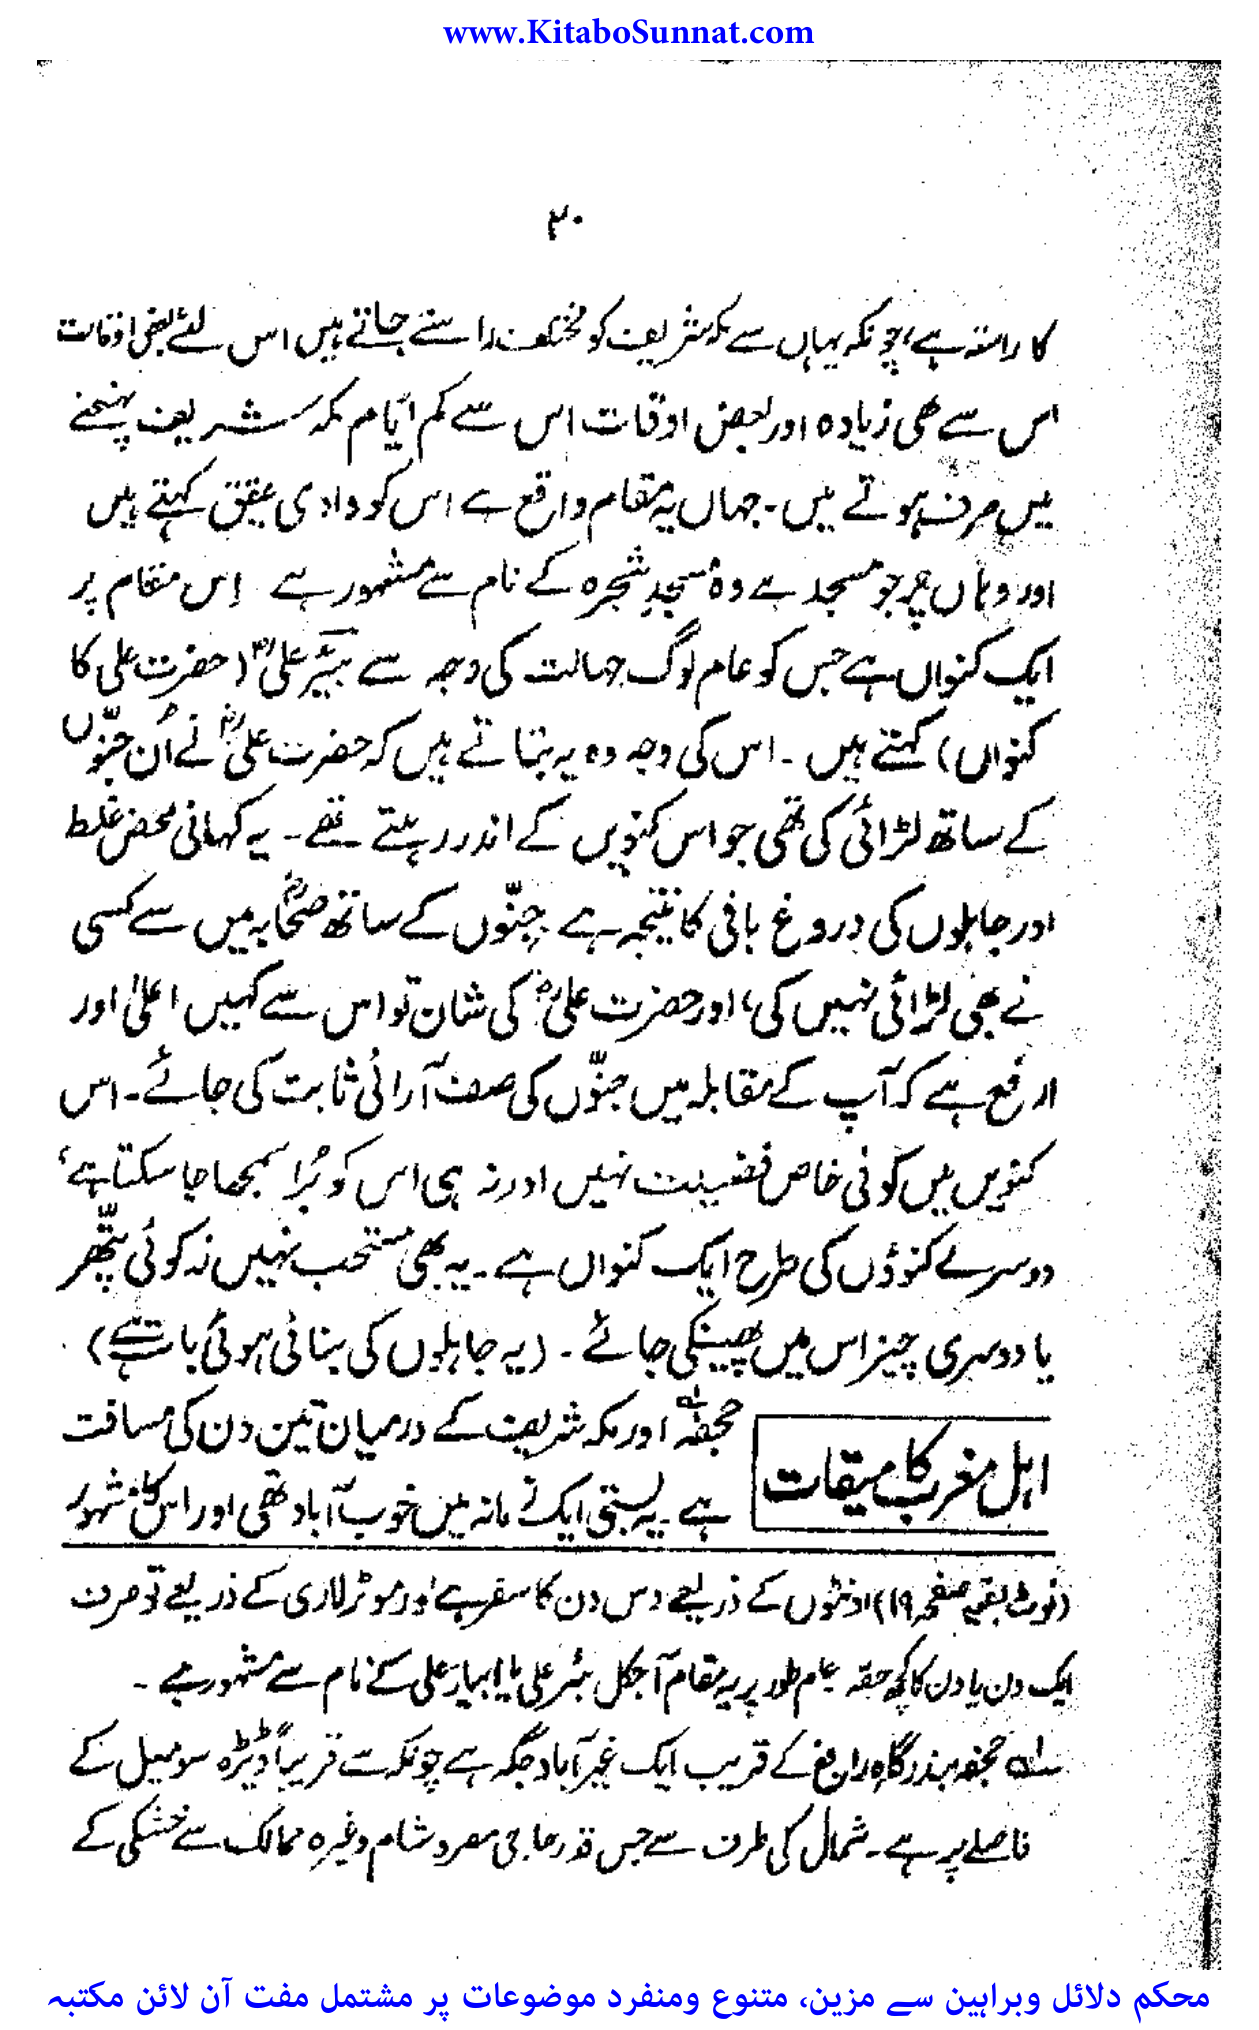 www.KitaboSunnat.com
۲۰
کا راستہ ہے، چونکہ یہاں سے مکہ شریف کو مختلف راستے جاتے ہیں اس لئے بعض اوقات
اس سے بھی زیادہ اور بعض اوقات اس سے کم ایّام مکہ شریف پہنچنے
میں صرف ہوتے ہیں۔ جہاں یہ مقام واقع ہے اس کو وادی عقیق کہتے ہیں
اور وہاں پر جو مسجد ہے وہ مسجدِ شجرہ کے نام سے مشہور ہے اِس مقام پر
ایک کنواں ہے جس کو عام لوگ جہالت کی وجہ سے بیئرِ علیؓ (حضرت علی کا
کنواں) کہتے ہیں۔ اس کی وجہ وہ یہ بتاتے ہیں کہ حضرت علیؓ نے اُن جنّوں
کے ساتھ لڑائی کی تھی جو اس کنویں کے اندر رہتے تھے۔ یہ کہانی محض غلط
اور جاہلوں کی دروغ بافی کا نتیجہ ہے جنّوں کے ساتھ صحابہؓ میں سے کسی
نے بھی لڑائی نہیں کی، اور حضرت علیؓ کی شان تو اس سے کہیں اعلیٰ اور
ارفع ہے کہ آپ کے مقابلہ میں جنّوں کی صف آرائی ثابت کی جائے۔ اس
کنویں میں کوئی خاص فضیلت نہیں اور نہ ہی اس کو بُرا سمجھا جا سکتا ہے،
دوسرے کنوؤں کی طرح ایک کنواں ہے۔ یہ بھی مستحب نہیں نہ کوئی پتّھر
یا دوسری چیز اس میں پھینکی جائے۔ (یہ جاہلوں کی بنائی ہوئی بات ہے)
اہل مغرب کا میقات
جحفہ؎۱ اور مکہ شریف کے درمیان تین دن کی مسافت
ہے۔ یہ بستی ایک زمانہ میں خوب آباد تھی اور اس کا مشہور
(نوٹ بقیہ صفحہ ۱۹) اونٹوں کے ذریعے دس دن کا سفر ہے اور موٹر لاری کے ذریعے تو صرف
ایک دن یا دن کا کچھ حصّہ عام طور پر یہ مقام آجکل بئر علی یا ابیار علی کے نام سے مشہور ہے۔
؎۱ جحفہ بندرگاہ رابغ کے قریب ایک غیر آباد جگہ ہے جو مکہ سے قریباً ڈیڑھ سو میل کے
فاصلے پر ہے۔ شمال کی طرف سے جس قدر حاجی مصر و شام وغیرہ ممالک سے خشکی کے
محکم دلائل وبراہین سے مزین، متنوع ومنفرد موضوعات پر مشتمل مفت آن لائن مکتبہ